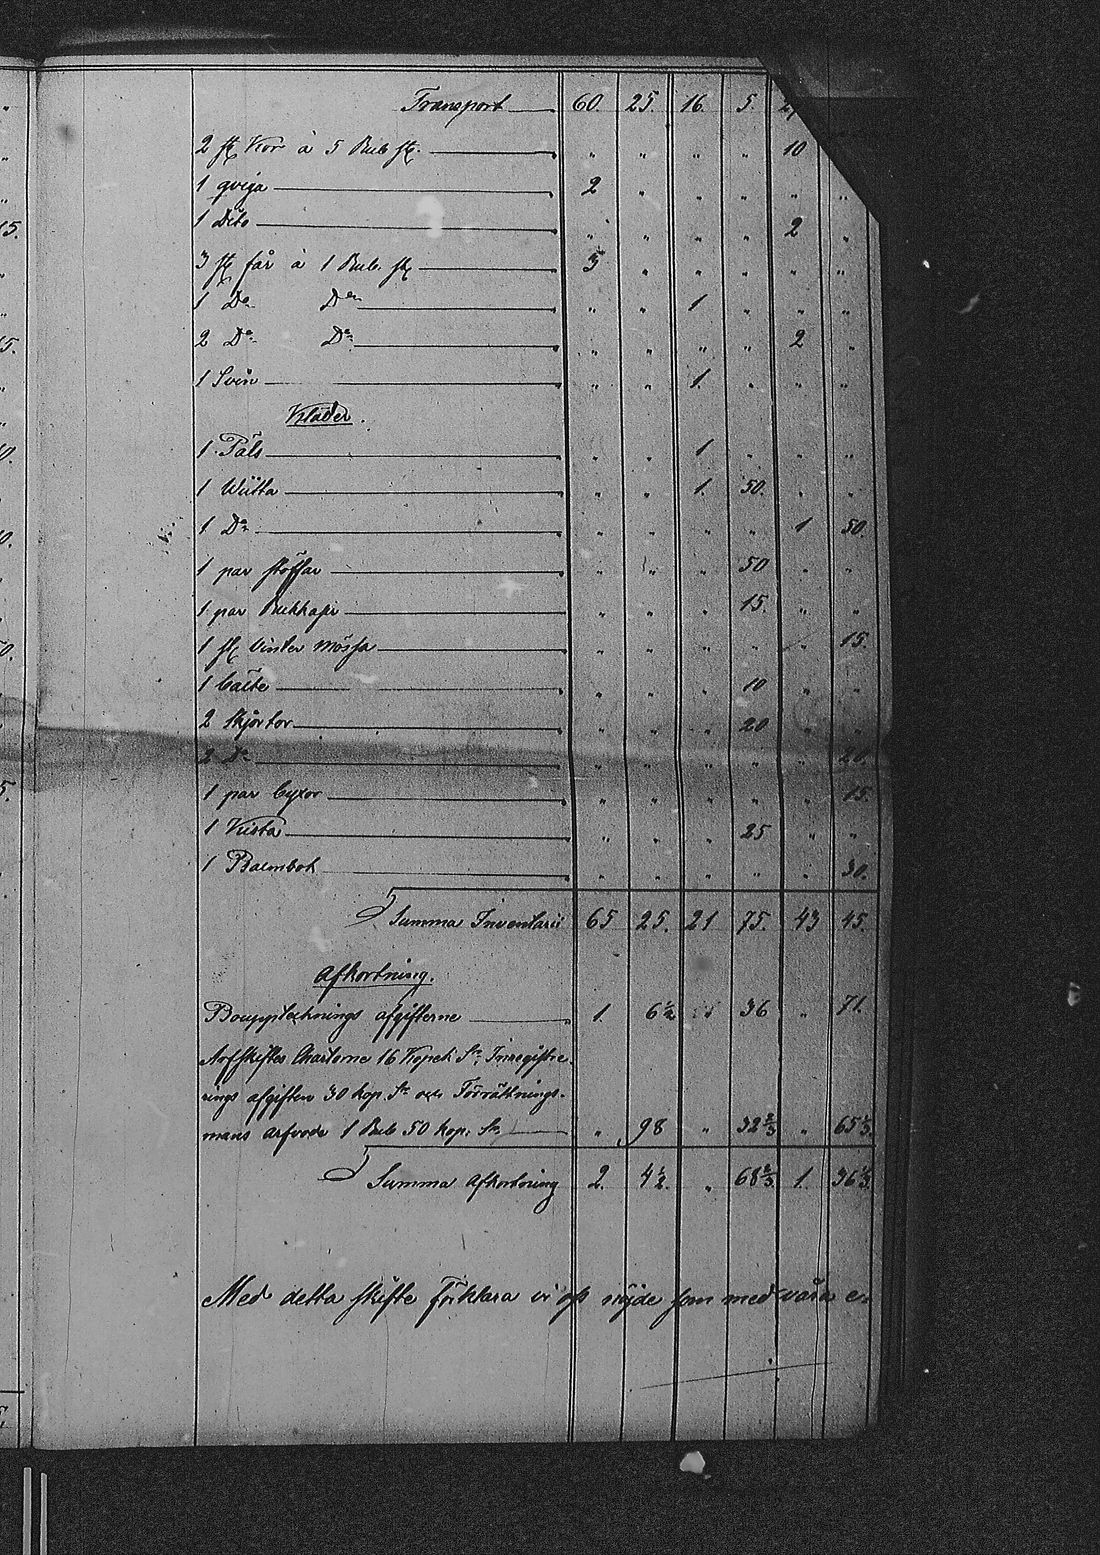 Transport 60. 25. 16. 5. 27
2 st Kor à 5 Rub st. " " " " 10
1 qviga 2 " " " " "
1 Dito " " " " 2 "
3 st får à 1 Rub. st 3 " " " " "
1 Do Do " " 1 " " "
2 Do Do " " " " 2 "
1 Svin " " 1. " " "
Kläder.
1 Päls " " 1 " " "
1 Wiitta " " 1. 50. " "
1 Do " " " " 1 50.
1 par stöflar " " " 50 " "
1 par Rukkase " " " 15. " "
1 st Vinter mössa " " " " " 15.
1 bälte " " " 10 " "
2 Skjortor " " " 20 " "
2 Do " " " " " 20.
1 par byxor " " " " " 15.
1 Kista " " " 25 " "
1 Psalmbok " " " " " 30.
Summa Inventarii 65 25. 21 75. 43 45.
Afkortning.
Bouppteknings afgifterne 1. 6½ " 36 " 71.
Arfskiftes Chartorne 16 Kopek Sr. Inregistre-
rings afgiften 30 kop. Sr och Förrättnings-
mans arfvode 1 Rub 50 kop. Sr. " 98 " 32⅔ " 65⅓
Summa Afkortning 2. 4½. " 68⅔ 1. 36⅓
Med detta skifte förklara vi oss nöjde som med våra e